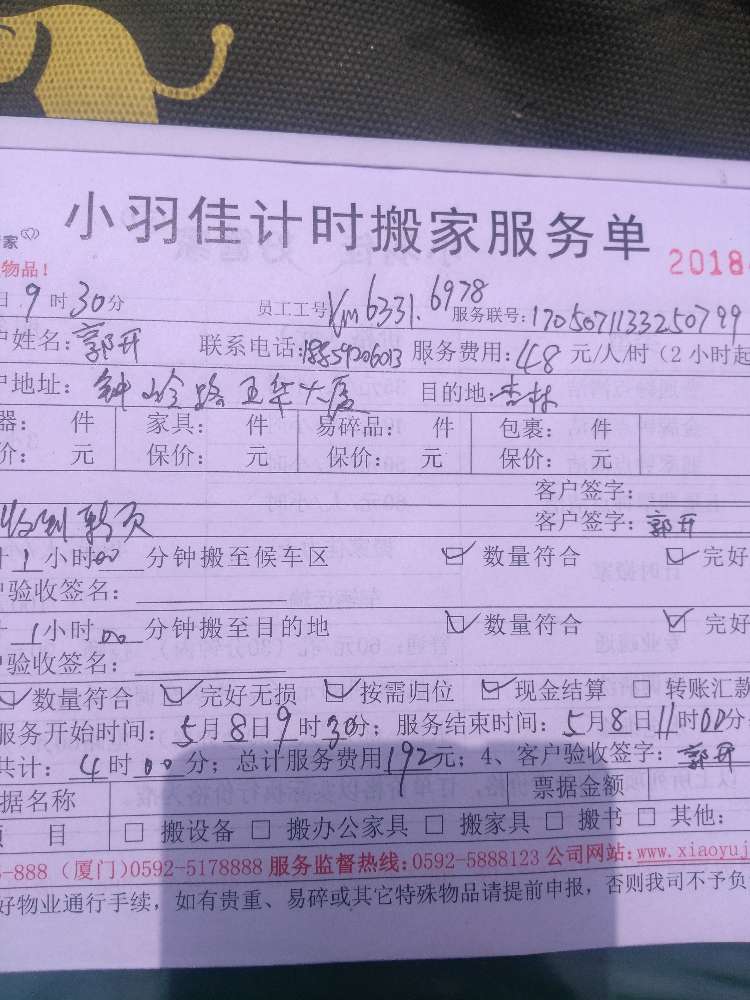 小羽佳计时搬家服务单
家
物品！
2018
日9时30分 员工工号 6331.6978 服务联号：1705071133250799
户姓名：郭开 联系电话：18859206013 服务费用：48元/人/时（2小时起
户地址：钟岭路 大厦 目的地：杏林
器： 件 家具： 件 易碎品： 件 包裹： 件
价： 元 保价： 元 保价： 元 保价： 元
客户签字：
收到 客户签字：郭开
计1小时00分钟搬至候车区 ☑数量符合 ☑完好
户验收签名：
1小时00分钟搬至目的地 ☑数量符合 ☑完好
户验收签名：
☑数量符合 ☑完好无损 ☑按需归位 ☑现金结算 □转账汇款
服务开始时间：5月8日9时30分；服务结束时间：5月8日11时00分；
共计：4时00分；总计服务费用192元；4、客户验收签字：郭开
据名称 票据金额
项 目 □搬设备 □搬办公家具 □搬家具 □搬书 □其他：
-888（厦门）0592-5178888 服务监督热线：0592-5888123 公司网站：www.xiaoyuj
好物业通行手续，如有贵重、易碎或其它特殊物品请提前申报，否则我司不予负